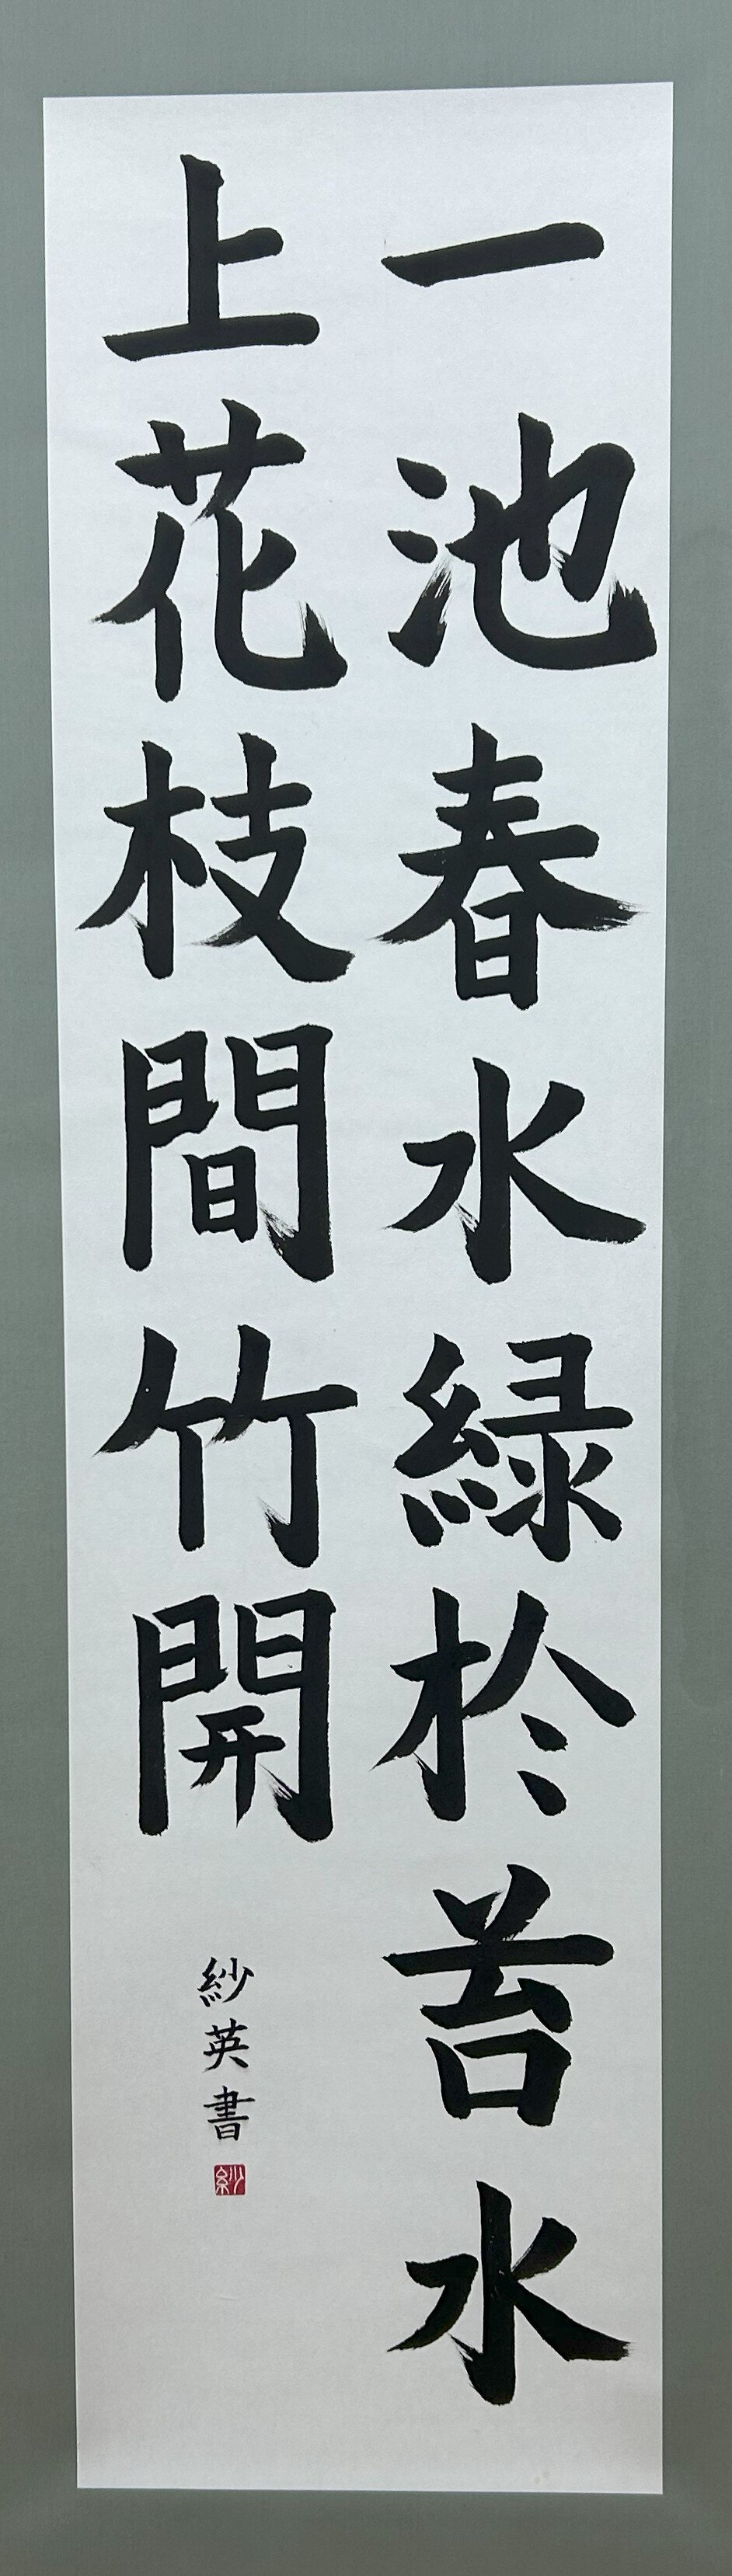 一池春水緑於苔水
上花枝間竹開
紗英書
紗